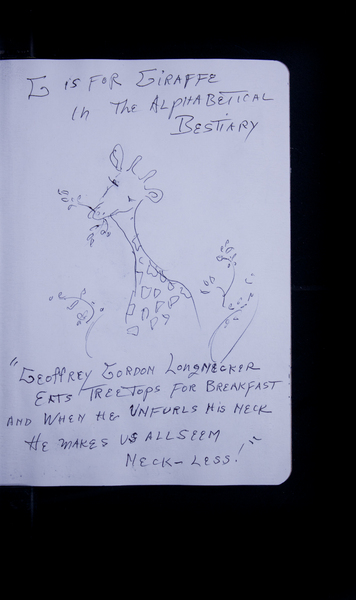 G is for Giraffe
in the Alphabetical
Bestiary
"Geoffrey Gordon Longnecker
Eats Treetops for Breakfast
and when he unfurls his neck
He makes us all seem
Neck-less!"